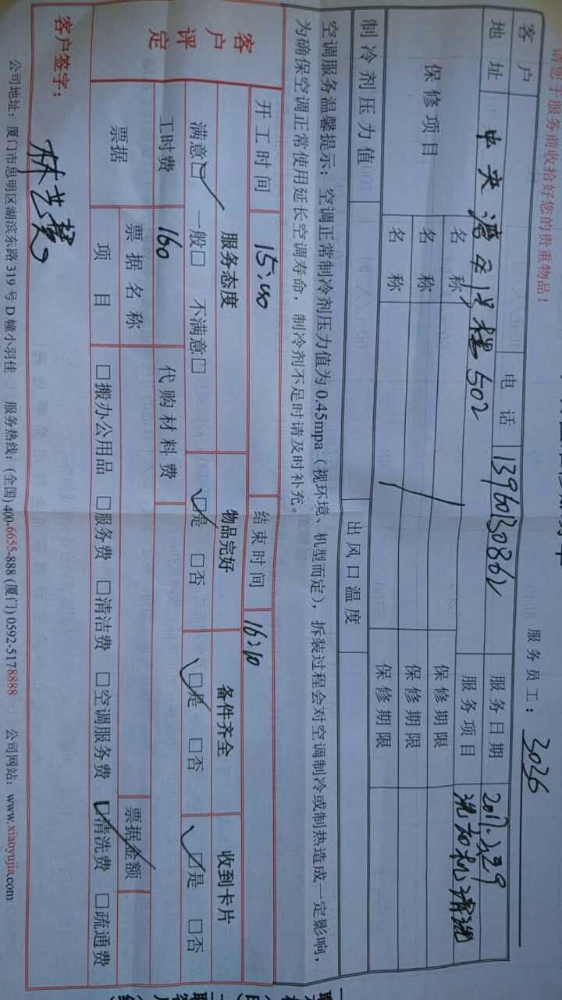 请您于服务前收拾好您的贵重物品！
服务员工：3026
客户 电话 13960130862 服务日期
地址 中央湾 502 服务项目 洗衣机清洗
保修项目 名称 保修期限
名称 保修期限
名称 保修期限
制冷剂压力值 出风口温度
空调服务温馨提示：空调正常制冷剂压力值为0.45mpa（视环境、机型而定），拆装过程会对空调制冷或制热造成一定影响，
为确保空调正常使用延长空调寿命，制冷剂不足时请及时补充。
开工时间 15:00 结束时间 16:10
客户评定 服务态度 物品完好 备件齐全 收到卡片
满意☑ 一般□ 不满意□ ☑是 □否 ☑是 □否 ☑是 □否
工时费 160 代购材料费
票据 票据名称 票据金额
项目 □搬办公用品 □服务费 □清洁费 □空调服务费 ☑清洗费 □疏通费
客户签字：林艺慧
公司地址：厦门市思明区湖滨东路319号D幢小羽佳 服务热线：(全国)400-6655-888 (厦门)0592-5178888 公司网站：www.xiaoyujia.com